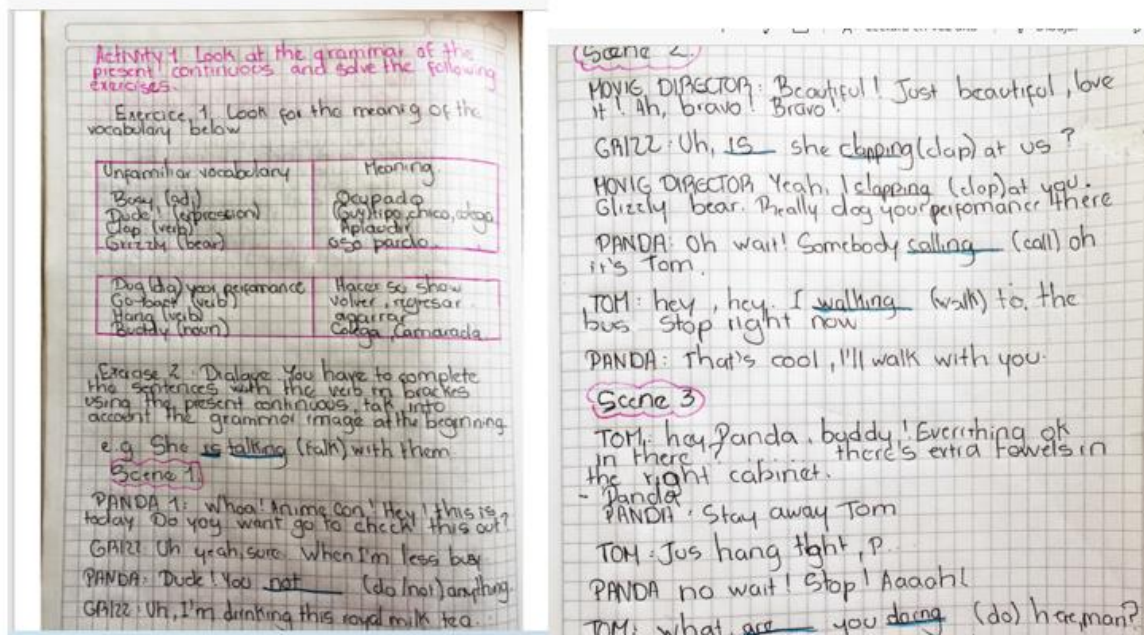 Activity 1. Look at the grammar of the
present continuous and solve the following
exercises.
Exercice 1. Look for the meanig of the
vocabulary below
Unfamiliar vocabulary
Meaning
Busy (adj)
Ocupado
Dude! (expression)
(Guy) tipo, chico, colega
Clap (verb)
Aplaudir
Grizzly (bear)
oso pardo
Dog (dig) your perfomance
Hacer su show
Go-back (verb)
volver, regresar
Hang (verb)
agarrar
Buddy (noun)
Colega, Camarada
Exercise 2. Dialogue. You have to complete
the sentences with the verb in brackes
using the present continuous, tak into
account the grammar image at the beginning
e.g. She is talking (talk) with them
Scene 1
PANDA 1: Whoa! Anime con! Hey! this is
today. Do you want go to check this out?
GRIZZ: Uh yeah, sure. When I'm less busy
PANDA: Dude! You not (do/not) anything.
GRIZZ: Uh, I'm drinking this royal milk tea.
Scene 2
MOVIE DIRECTOR: Beautiful! Just beautiful, love
it! Ah, bravo! Bravo!
GRIZZ: Uh, IS she clapping (clap) at us?
MOVIE DIRECTOR Yeah, I clapping (clap) at you.
Glizzly bear. Really dog your perfomance there
PANDA: Oh wait! Somebody calling (call) oh
it's Tom.
TOM: hey, hey. I walking (walk) to, the
bus stop right now
PANDA: That's cool, I'll walk with you.
Scene 3
TOM: hey, Panda, buddy! Everithing ok
in there? ........ there's extra towels in
the right cabinet.
- Panda
PANDA: Stay away Tom
TOM: Jus hang tight, P.
PANDA no wait! Stop! Aaaah!
TOM: what are you doing (do) here, man?